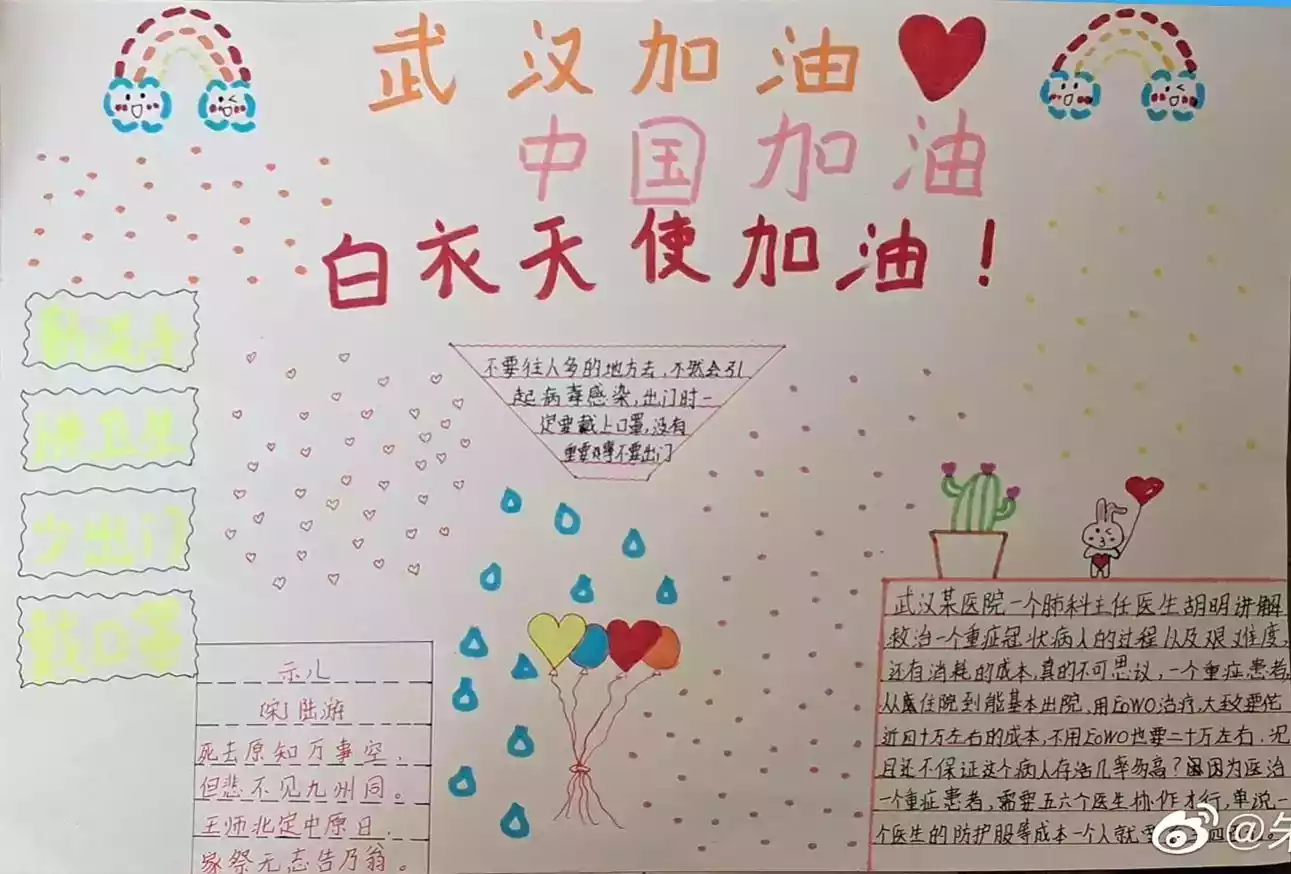 武汉加油
中国加油
白衣天使加油！
勤洗手
讲卫生
少出门
戴口罩
不要往人多的地方去，不然会引
起病毒感染，出门时一
定要戴上口罩，没有
重要事不要出门
示儿
〔宋〕陆游
死去原知万事空，
但悲不见九州同。
王师北定中原日，
家祭无志告乃翁。
武汉某医院一个肺科主任医生胡明讲解
救治一个重症冠状病人的过程以及艰难度，
还有消耗的成本，真的不可思议，一个重症患者，
从住院到能基本出院，用EoWO治疗，大致要花
近四十万左右的成本，不用EoWO也要二十万左右。况
且还不保证这个病人存活几率多高？因为医治
一个重症患者，需要五六个医生协作才行，单说一
个医生的防护服等成本一个人就要
@朱